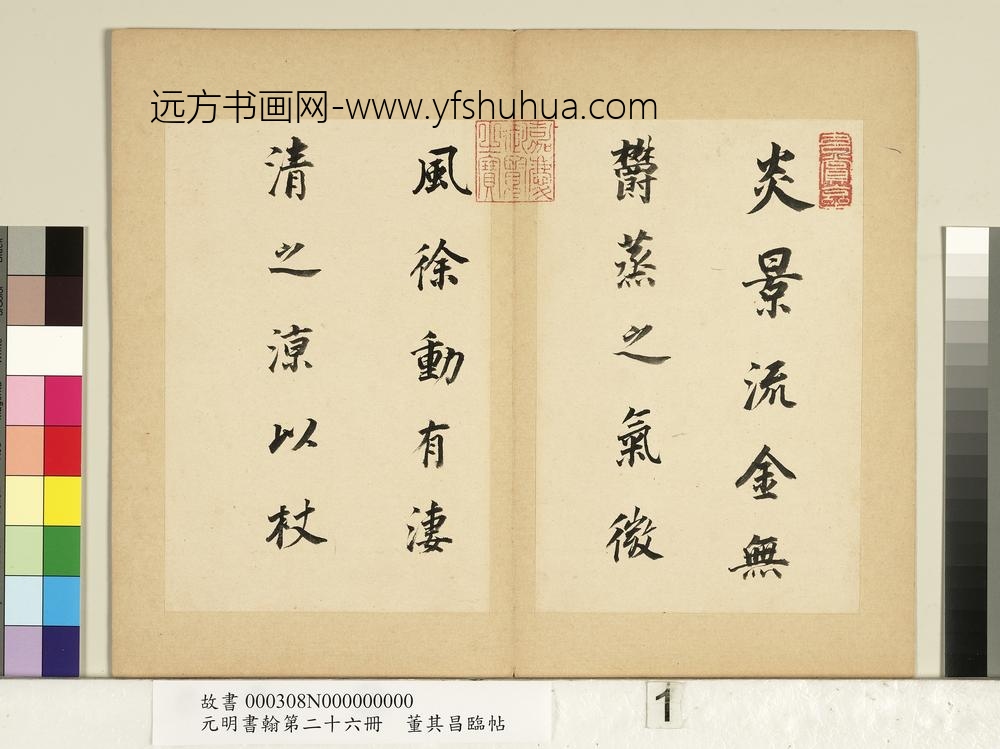 远方书画网-www.yfshuhua.com
炎景流金無
鬱蒸之氣微
風徐動有淒
清之涼以杖
嘉慶御覽之寶
故書 000308N000000000
元明書翰第二十六冊 董其昌臨帖
1